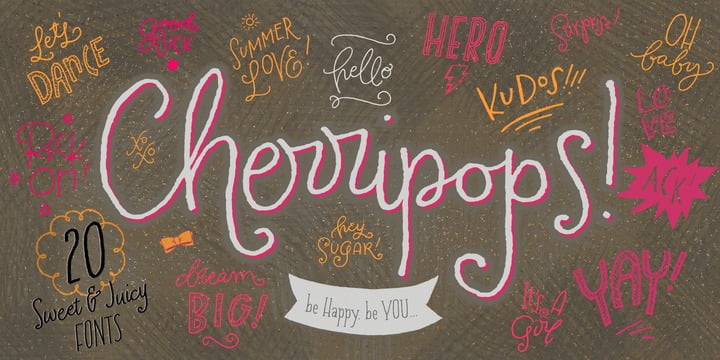 Let's
DANCE
Good
Luck
SUMMER
LOVE!
hello
HERO
Surprise!
OH
baby
KUDOS!!!
LO
VE
Rock
on!
XO
XO
Cherripops!
ACK!
20
Sweet & Juicy
FONTS
hey
SUGAR!
dream
BIG!
be Happy. be YOU...
It's A
Girl
YAY!